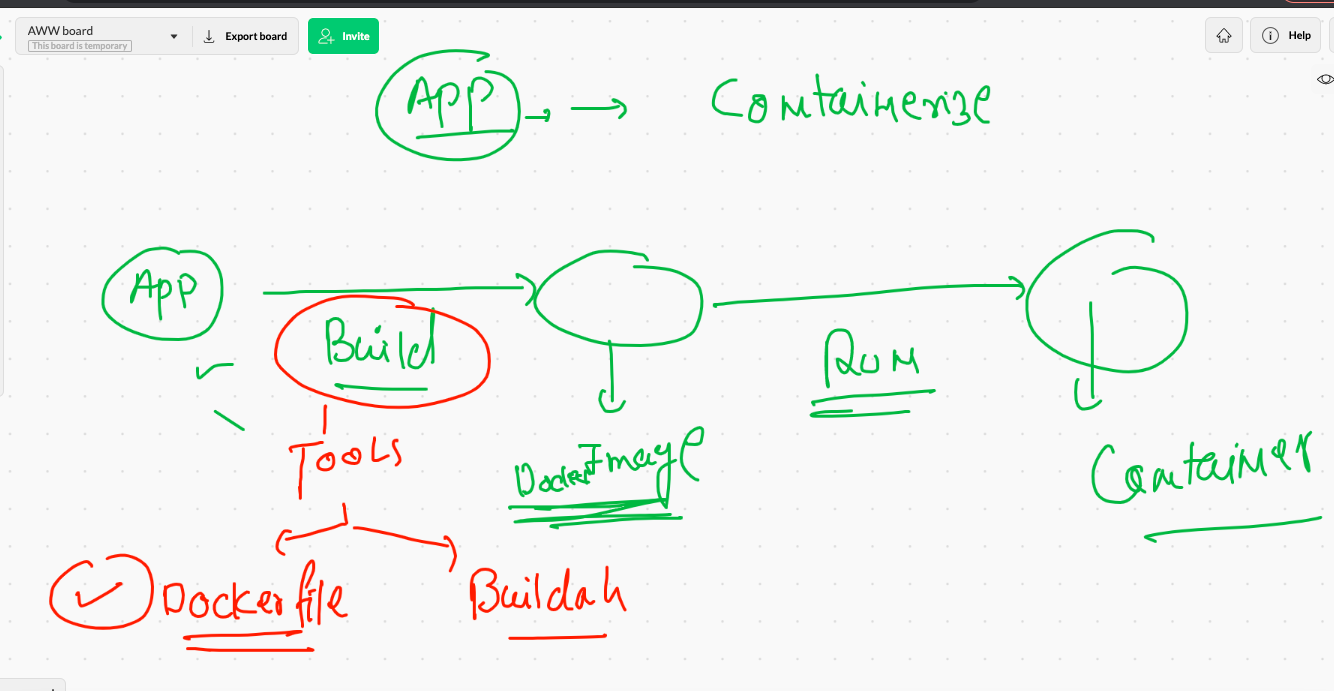 AWW board
This board is temporary
Export board
Invite
Help
App → Containerize
App
Build
Run
Tools
Docker Image
Container
Dockerfile
Buildah